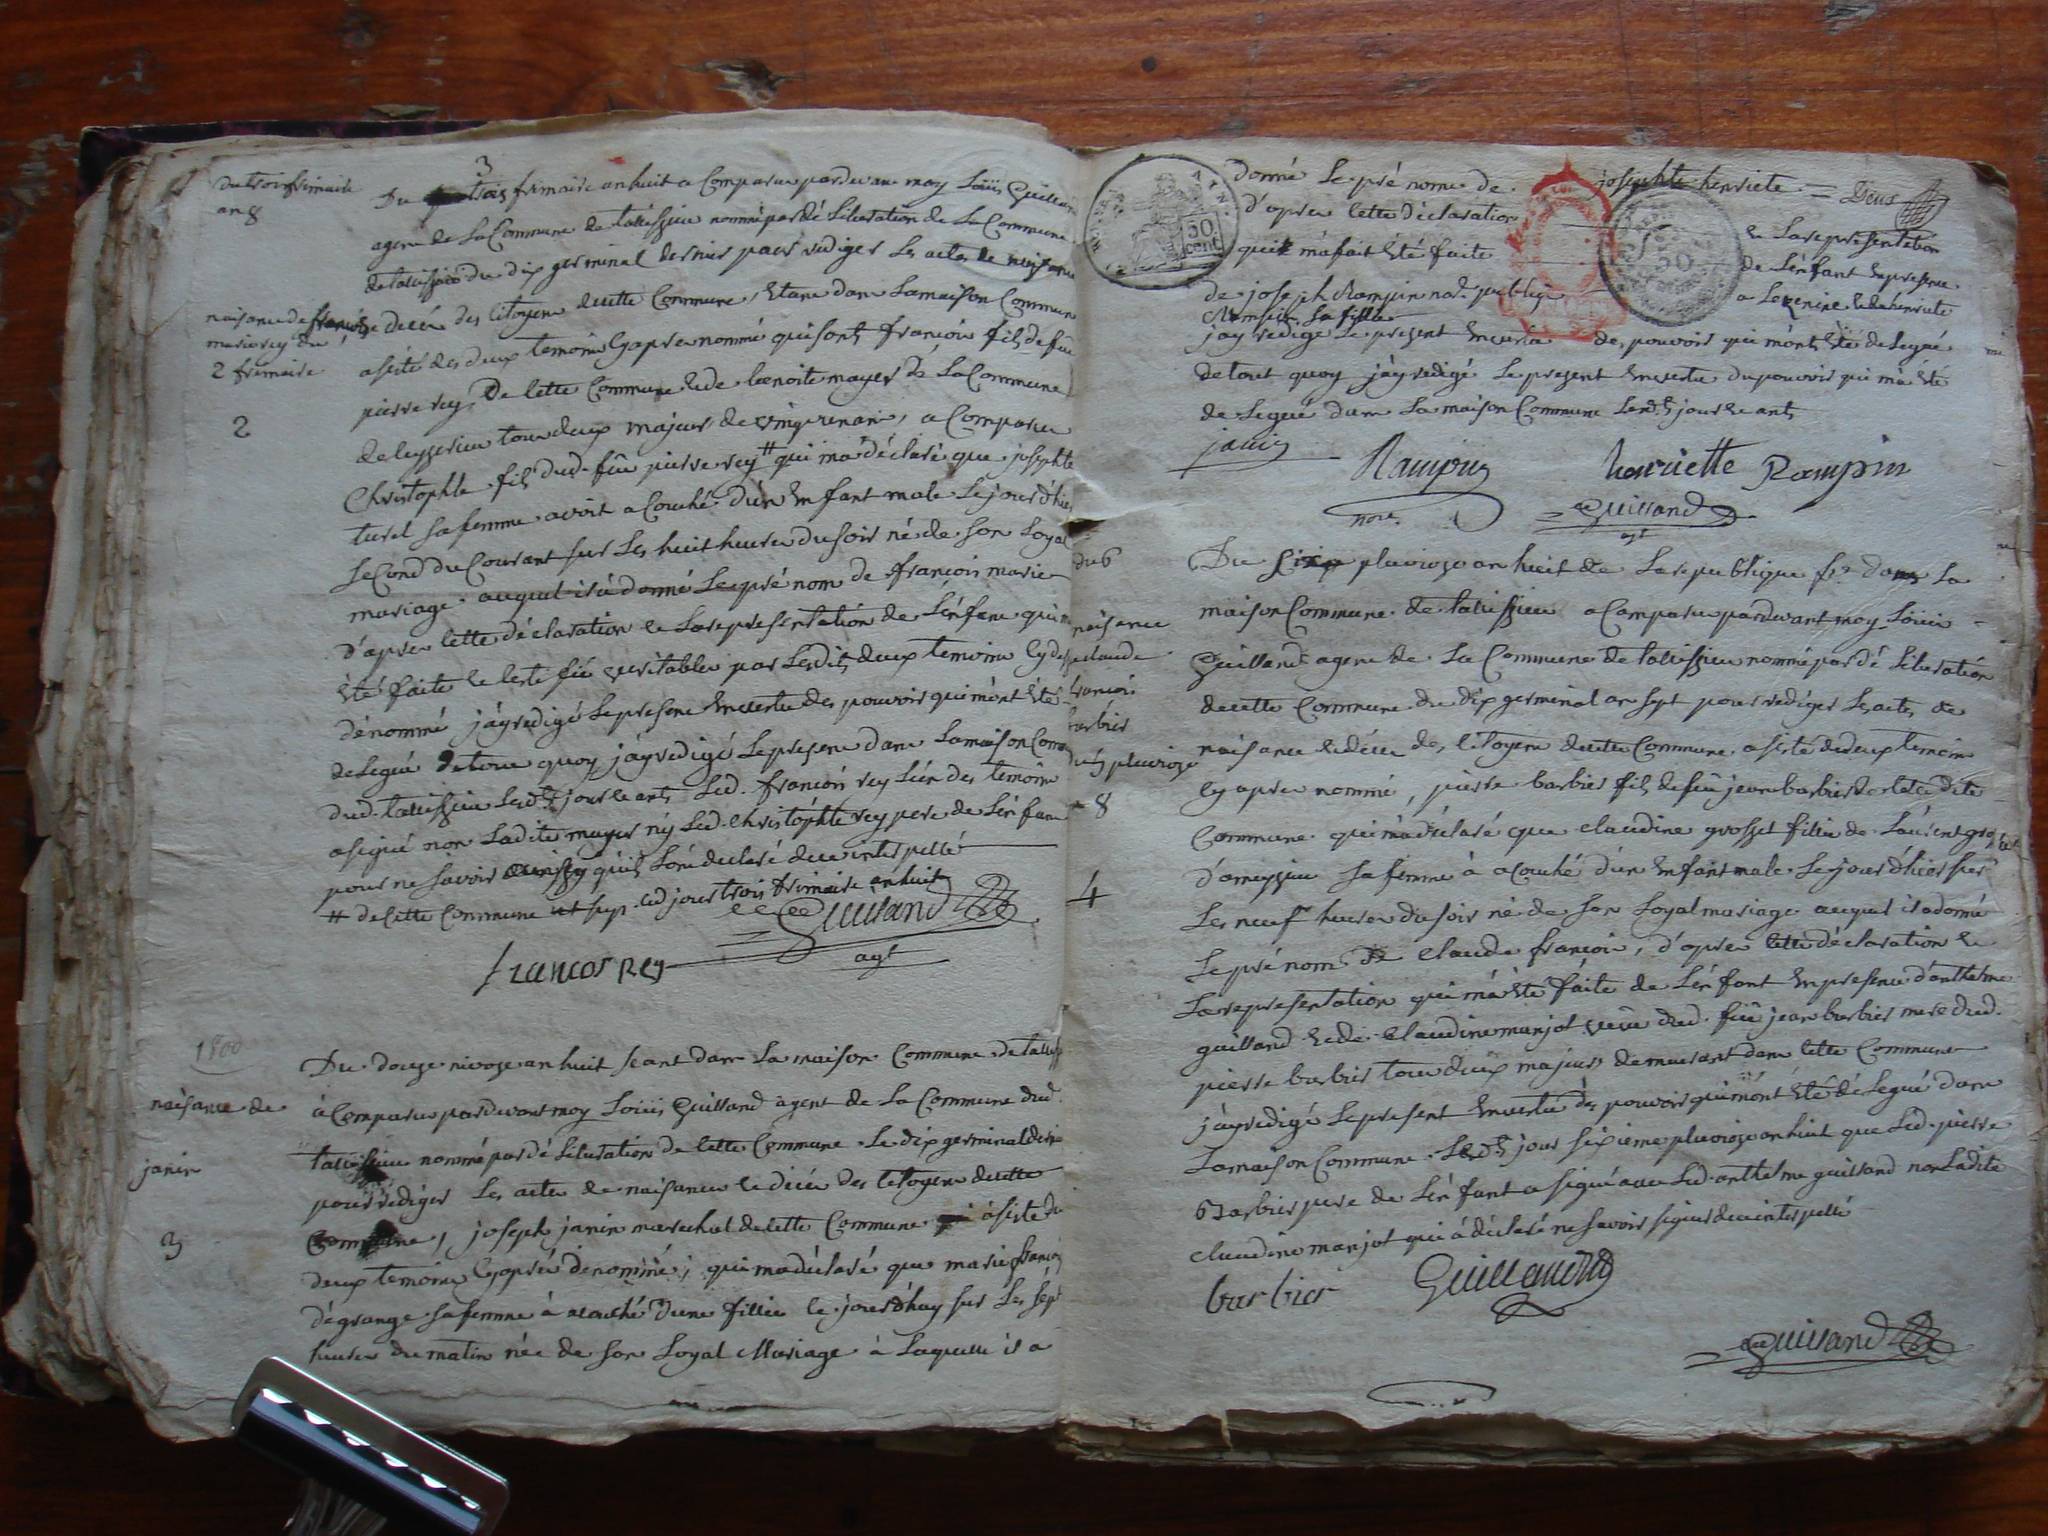 du trois frimaire
an 8
naisance de françois
marie rey du
2 frimaire
2
3
Du trois frimaire an huit a Comparu pardevant moy Loüis Guilland
agent de La Commune de talissieu nommé par déliberation de La Commune
de talissieu du dix germinal dernier pour rediger Les actes de naisance
e decéz des Citoyens decette Commune, Etant dans La maison Commune
asisté des deux temoins Cy apres nommé qui sont françois fils de feu
pierre rey De Cette Commune et de benoite mayer de La Commune
de tous deux majeurs de vingt un ans, a Comparu
Christophle fils dud. feu pierre rey # qui m'a déclaré que josephte
turel sa femme avoit acouché d'un Enfant male Le jour d'hier
Second du Courant sur Les huit heures du soir né de Son Loyal
mariage auquel il a donné Le pré nom de françois marie
d'apres Cette déclaration et La representation de L'enfant qui m'a
été faite et Certifié veritable par Lesdits deux temoins Cy des
dénommé j'ay redigé Le present En vertu des pouvoir qui m'ont été
delegué De tout quoy j'ay redigé Le present dans La maison Commune
dud. talissieu Lesd. jour et ant Led. françois rey L'un des temoins
a signé non Ladite mayer ny Led. Christophle rey pere de L'enfant
pour ne savoir ainsy qu'ils L'ont declaré de ce interpellé
# de Cette Commune ced jour trois frimaire an huit
Guilland
agt
francos Rey
1800
naisance de
janin
3
Du douze nivoze an huit seant dans La maison Commune de talissieu
à Comparu pardevant moy Loüis Guilland agent de La Commune dud.
talissieu nommé par déliberation de Cette Commune Le dix germinal dernier
pour rédiger Les actes de naisance et décés des Citoyens decette
Commune, joseph janin marechal de Cette Commune asisté de
deux temoins Cy après dénommé, qui m'a déclaré que marie françoise
dégrange sa femme à acouché d'une fillie Le jourd'huy sur Les sept
heures du matin née de Son Loyal Mariage à Laquelle il a
50
cent
donné Le pré nome de josephte henriete = Deux
d'apres Cette déclaration et La representation
qui m'a fait Eté faite de L'enfant En presence
de joseph Rampin not. public a et dehenriete
Rampin, Sa fillie
j'ay redigé Le present En vertu des pouvoir qui m'ont Eté delegué
de tout quoy j'ay redigé Le present En vertu du pouvoir qui m'a Eté
delegué dans La maison Commune Lesd. jour et ant
janin
Rampin
nore.
henriette Rampin
Guilland
agt
du 6
naisance
de claude
francois
barbier
du 5 pluvioze
an 8
4
Du Six pluvioze an huit de La republique fse dans La
maison Commune de talissieu a Comparu pardevant moy Loüis
Guilland agent de La Commune de talissieu nommé par déliberation
decette Commune du dix germinal an sept pour rediger Les actes de
naisance et décéz des Citoyens decette Commune asisté de deux temoins
Cy apres nommé, pierre barbier fils de feu jean barbier de Cette dite
Commune qui m'a déclaré que claudine grosset fillie de Laurent grosset
d'ameyzieu sa femme à acouché d'un Enfant male Le jour d'hier sur
Les neuf heures du soir né de Son Loyal mariage auquel il a donné
Le pré nom de claude francois, d'apres Cette déclaration et
La representation qui m'a Eté faite de L'enfant En presence d'anthelme
guilland et de Claudine manjot veuve dud. feu jean barbier mere dud.
pierre barbier tous deux majeurs demeurant dans Cette Commune
j'ay redigé Le present En vertu des pouvoir qui m'ont Eté délegué dans
La maison Commune Lesd. jour sixieme pluvioze an huit que Led. pierre
Barbier pere de L'enfant a signé avec Led. anthelme guilland non Ladite
claudine manjot qui a déclaré ne savoir signer de ce interpellé
barbier
Guilland
Guilland